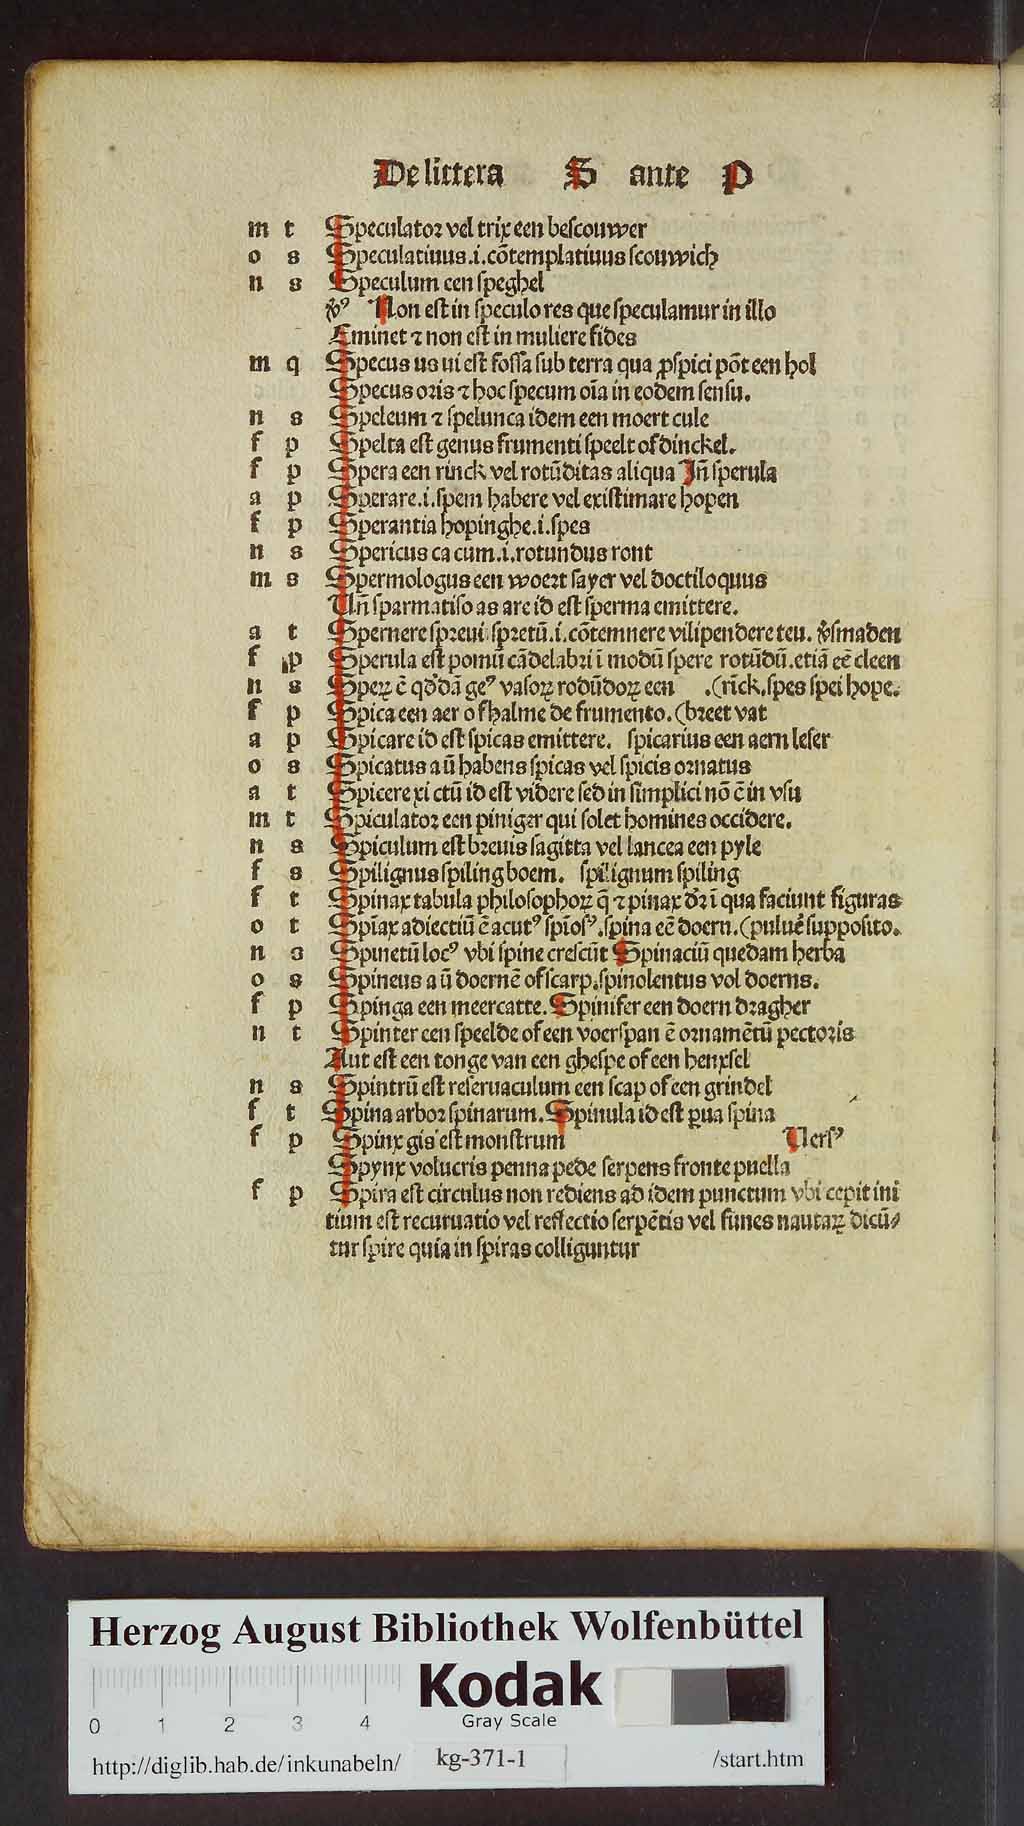 De littera S ante P
m t Speculator vel trix een bescouwer
o s Speculatiuus .i. cõtemplatiuus scouwich
n s Speculum een speghel
Non est in speculo res que speculamur in illo
Eminet ⁊ non est in muliere fides
m q Specus us ui est fossa sub terra qua ꝓspici põt een hol
Specus oris ⁊ hoc specum oĩa in eodem sensu.
n s Speleum ⁊ spelunca idem een moert cule
f p Spelta est genus frumenti speelt of dinckel.
f p Spera een rinck vel rotũditas aliqua Jñ sperula
a p Sperare .i. spem habere vel existimare hopen
f p Sperantia hopinghe .i. spes
n s Spericus ca cum .i. rotundus ront
m s Spermologus een woert sayer vel doctiloquus
Vñ sparmatiso as are id est sperma emittere.
a t Spernere spreui spretũ .i. cõtemnere vilipendere teu. v̉smaden
f p Sperula est pomũ cãdelabri ĩ modũ spere rotũdũ. etiã eẽ cleen
n s Speꝝ ẽ qđdã geꝰ vasoꝝ rodũdoꝝ een .(rĩck. spes spei hope.
f p Spica een aer of halme de frumento. (breet vat
a p Spicare id est spicas emittere. spicarius een aern leser
o s Spicatus a ũ habens spicas vel spicis ornatus
a t Spicere xi ctũ id est videre sed in simplici nõ ẽ in vsu
m t Spiculator een piniger qui solet homines occidere.
n s Spiculum est breuis sagitta vel lancea een pyle
f s Spilignus spiling boem. spilignum spiling
f t Spinax tabula philosophoꝝ q̃ ⁊ pinax dr̃ ĩ qua faciunt figuras
o t Spĩax adiectiũ ẽ acutꝰ spĩosꝰ. spina eẽ doern. (puluẽ supposito.
n s Spinetũ locꝰ vbi spine crescũt Spinaciũ quedam herba
o s Spineus a ũ doernẽ of scarp. spinolentus vol doerns.
f p Spinga een meercatte. Spinifer een doern dragher
n t Spinter een speelde of een voerspan ẽ ornamẽtũ pectoris
Aut est een tonge van een ghespe of een henxsel
n s Spintrũ est reseruaculum een scap of een grindel
f t Spina arbor spinarum. Spinula id est ꝑua spina
f p Spinx gis est monstrum Versꝰ
Spynx volucris penna pede serpens fronte puella
f p Spira est circulus non rediens ad idem punctum vbi cepit ini
tium est recuruatio vel reflectio serpẽtis vel funes nautaꝝ dicũ⸗
tur spire quia in spiras colliguntur
Herzog August Bibliothek Wolfenbüttel
Kodak
Gray Scale
0 1 2 3 4
http://diglib.hab.de/inkunabeln/ kg-371-1 /start.htm